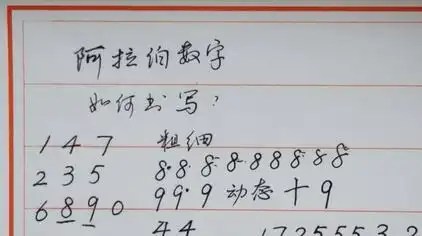 阿拉伯数字
如何书写?
1 4 7 粗细
8·8·8·8·8 8 8 8 8
2 3 5
6 8 9 0 99·9 动态十9
44 17255532